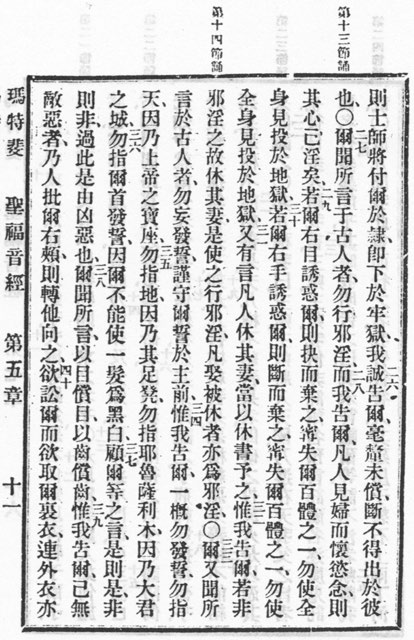 第十三節誦
第十四節誦
二六
則士師將付爾於隸、卽下於牢獄、我誠告爾、毫釐未償、斷不得出於彼
二七 二八
也○爾聞所言于古人者、勿行邪淫、而我告爾、凡人見婦而懷慾念、則
二九
其心已淫矣、若爾右目誘惑爾、則抉而棄之、寧失爾百體之一、勿使全
三十
身見投於地獄、若爾右手誘惑爾、則斷而棄之、寧失爾百體之一、勿使
三一 三二
全身見投於地獄、又有言、凡人休其妻、當以休書予之、惟我告爾、若非
三三
邪淫之故、休其妻、是使之行邪淫、凡娶被休者、亦爲邪淫○爾又聞所
三四
言於古人者、勿妄發誓、謹守爾誓於主前、惟我告爾、一概勿發誓、勿指
三五
天、因乃上帝之寶座、勿指地、因乃其足凳、勿指耶魯薩利木、因乃大君
三六 三七
之城、勿指爾首發誓、因爾不能使一髮爲黑白、顧爾等之言、是則是、非
三八 三九
則非、過此是由凶惡也、爾聞所言、以目償目、以齒償齒、惟我告爾、己無
四十
敵惡者、乃人批爾右頰、則轉他向之、欲訟爾、而欲取爾裏衣、連外衣亦
瑪特斐 聖福音經 第五章 十一